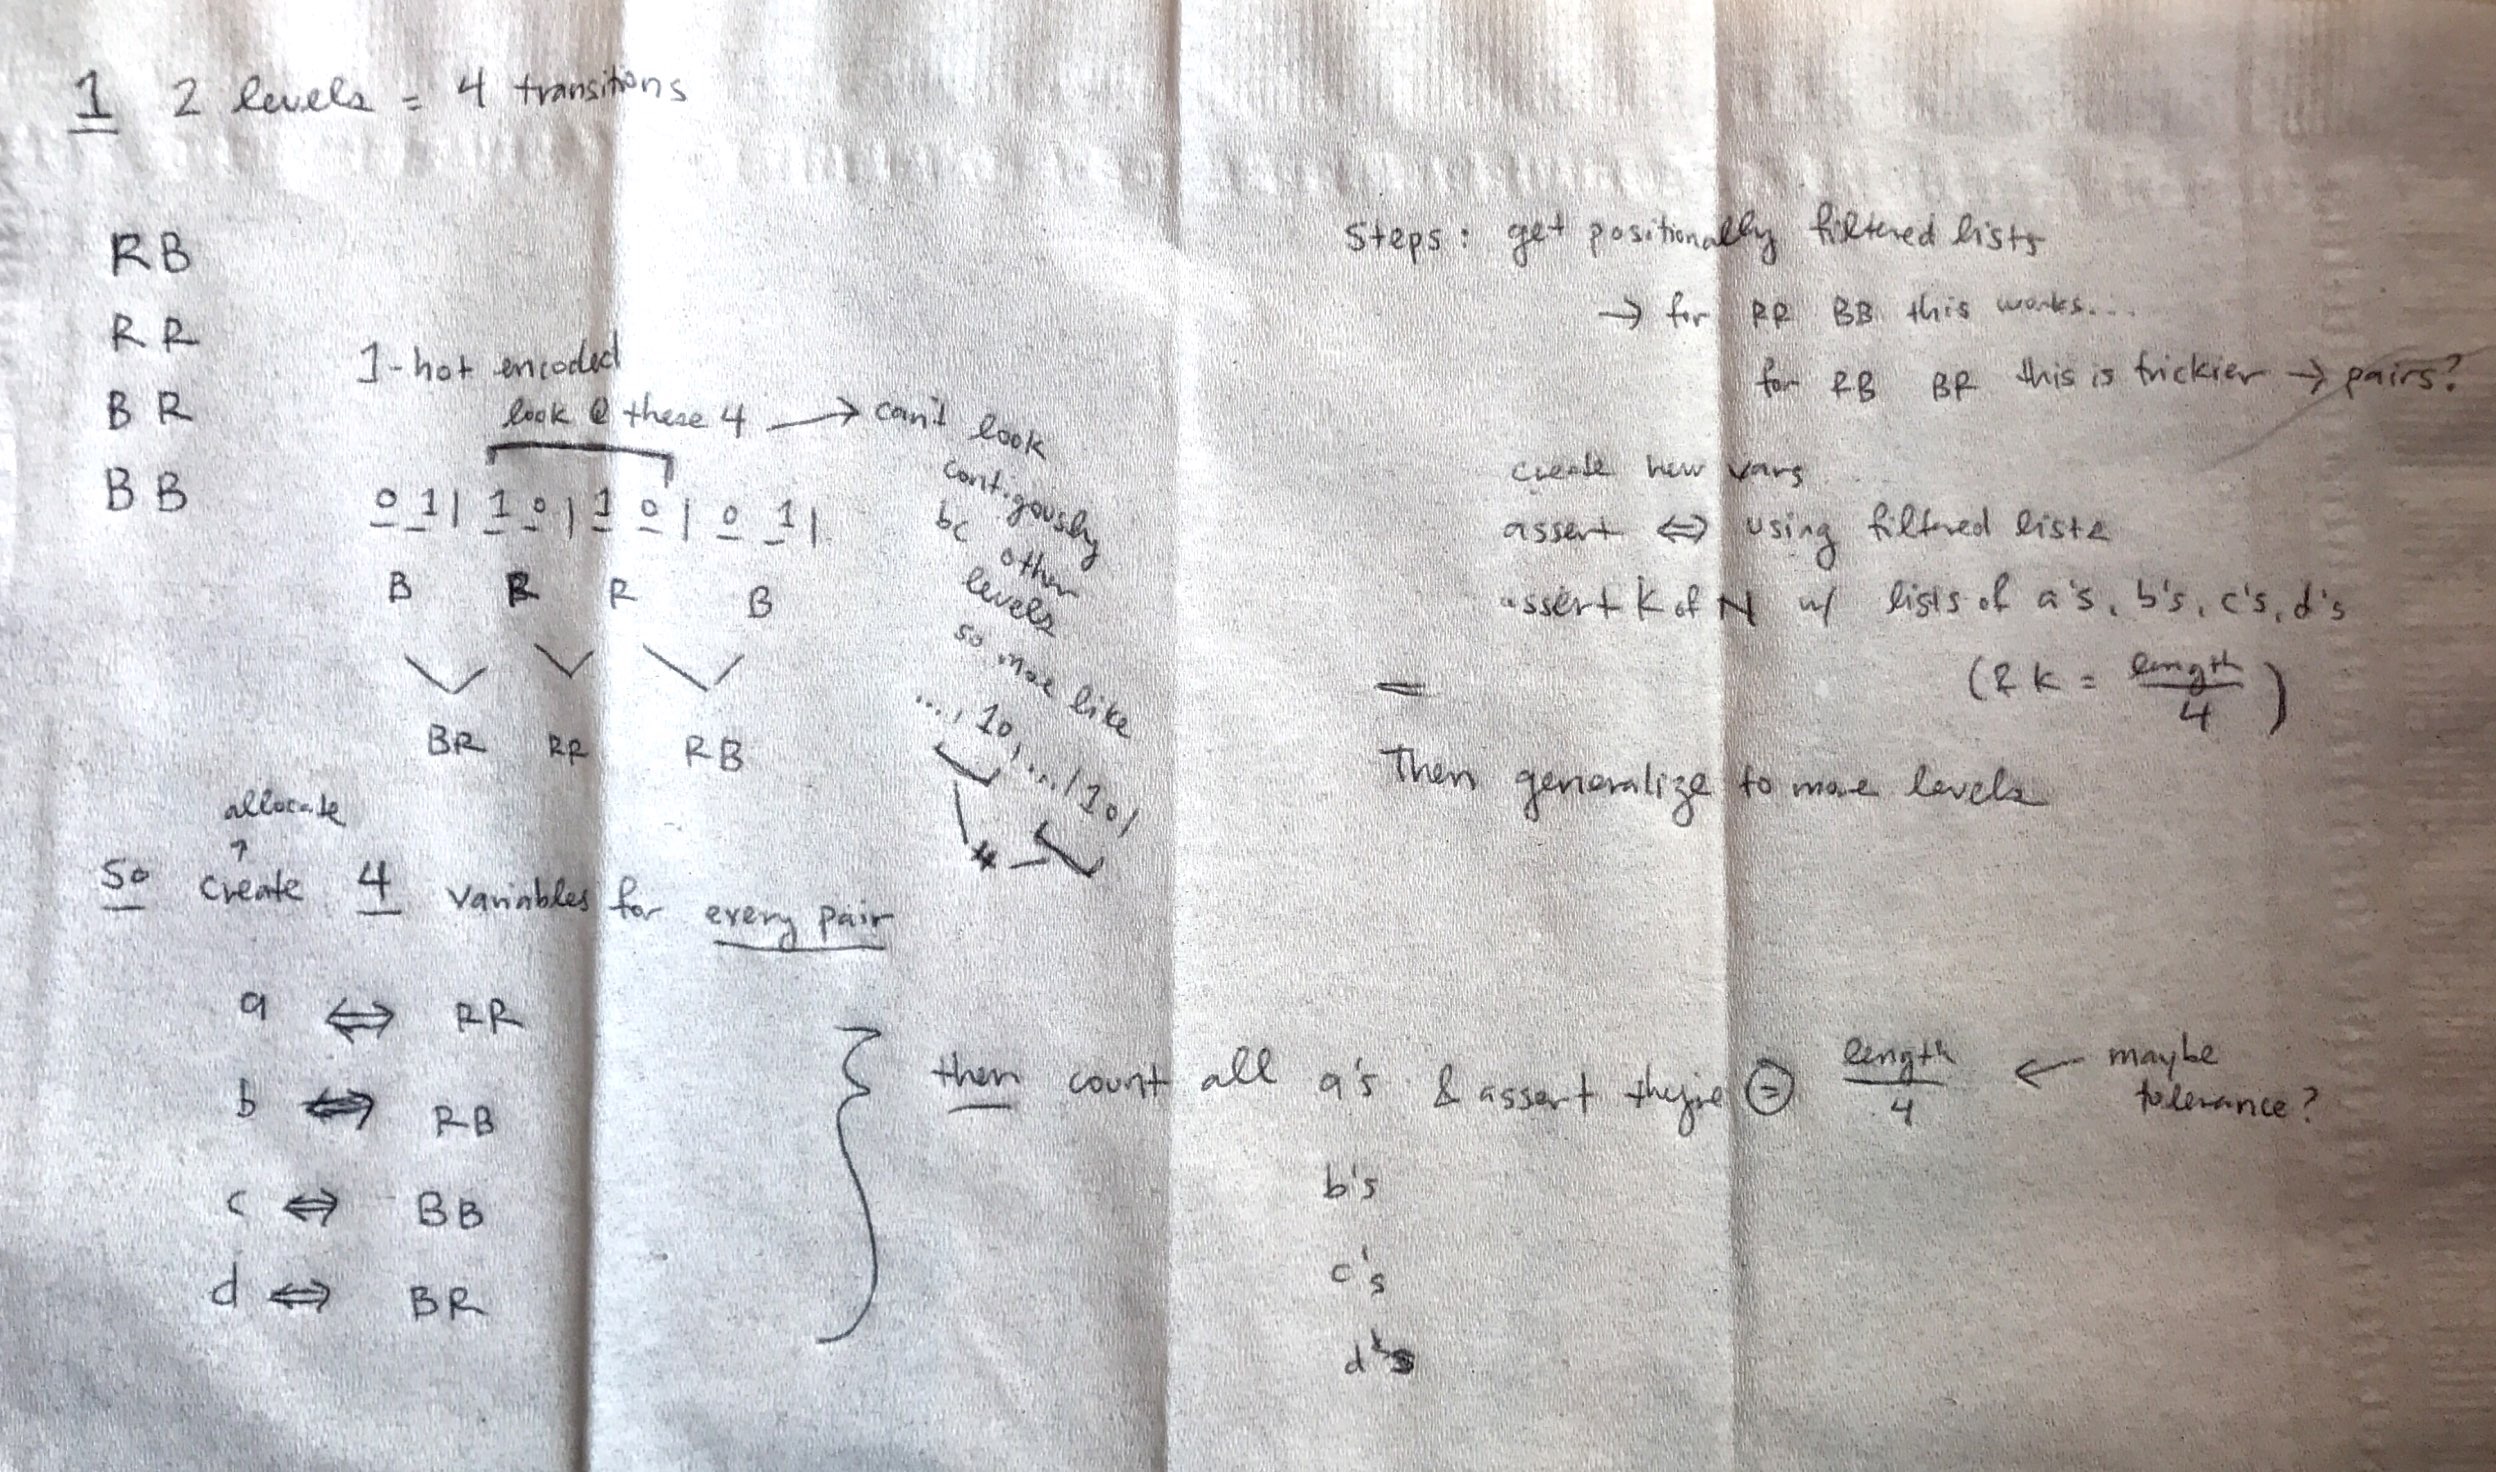 1 2 levels = 4 transitions
RB
RR
BR
BB
1-hot encoded
look @ these 4 → can't look
contigously
bc other
levels
so more like
..., 10, ... / 10/
4
0 1 | 1 0 | 1 0 | 0 1 |
B R R B
BR RR RB
allocate
↑
So create 4 variables for every pair
a ⇔ RR
b ⇔ RB
c ⇔ BB
d ⇔ BR
then count all a's & assert they're = length/4 ← maybe
tolerance?
b's
c's
d's
Steps: get positionally filtered lists
→ for RR BB this works...
for RB BR this is trickier → pairs?
create new vars
assert ⇔ using filtered lists
assert K of N w/ lists of a's, b's, c's, d's
( k = length/4 )
Then generalize to more levels